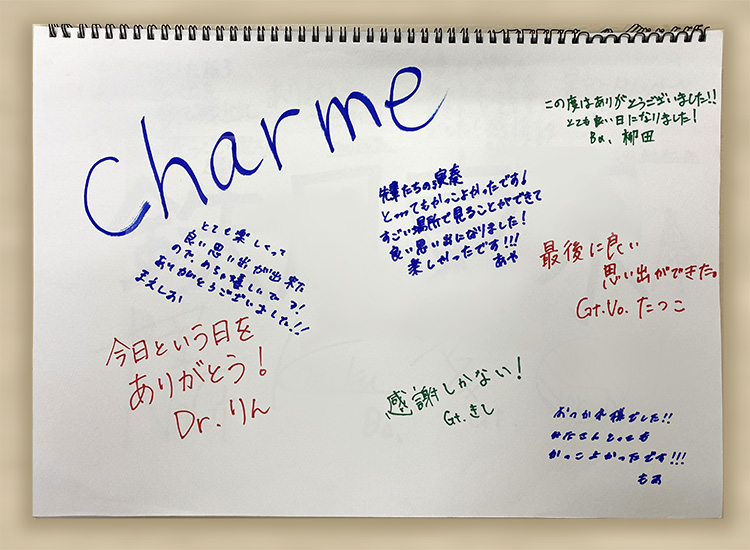 charme
この度はありがとうございました!!
とても良い日になりました!
Ba. 柳田
先輩たちの演奏
とってもかっこよかったです!
すごい場所で見ることができて
良い思い出になりました!
楽しかったです!!!
あや
とても楽しくって
良い思い出が出来た
ので、めちゃ嬉しいです!
ありがとうございました!!
まえしお
最後に良い
思い出ができた。
Gt.Vo. たつこ
今日という日を
ありがとう!
Dr. りん
感謝しかない!
Gt. きし
おつかれ様でした!!
みなさんとっても
かっこよかったです!!!
もあ